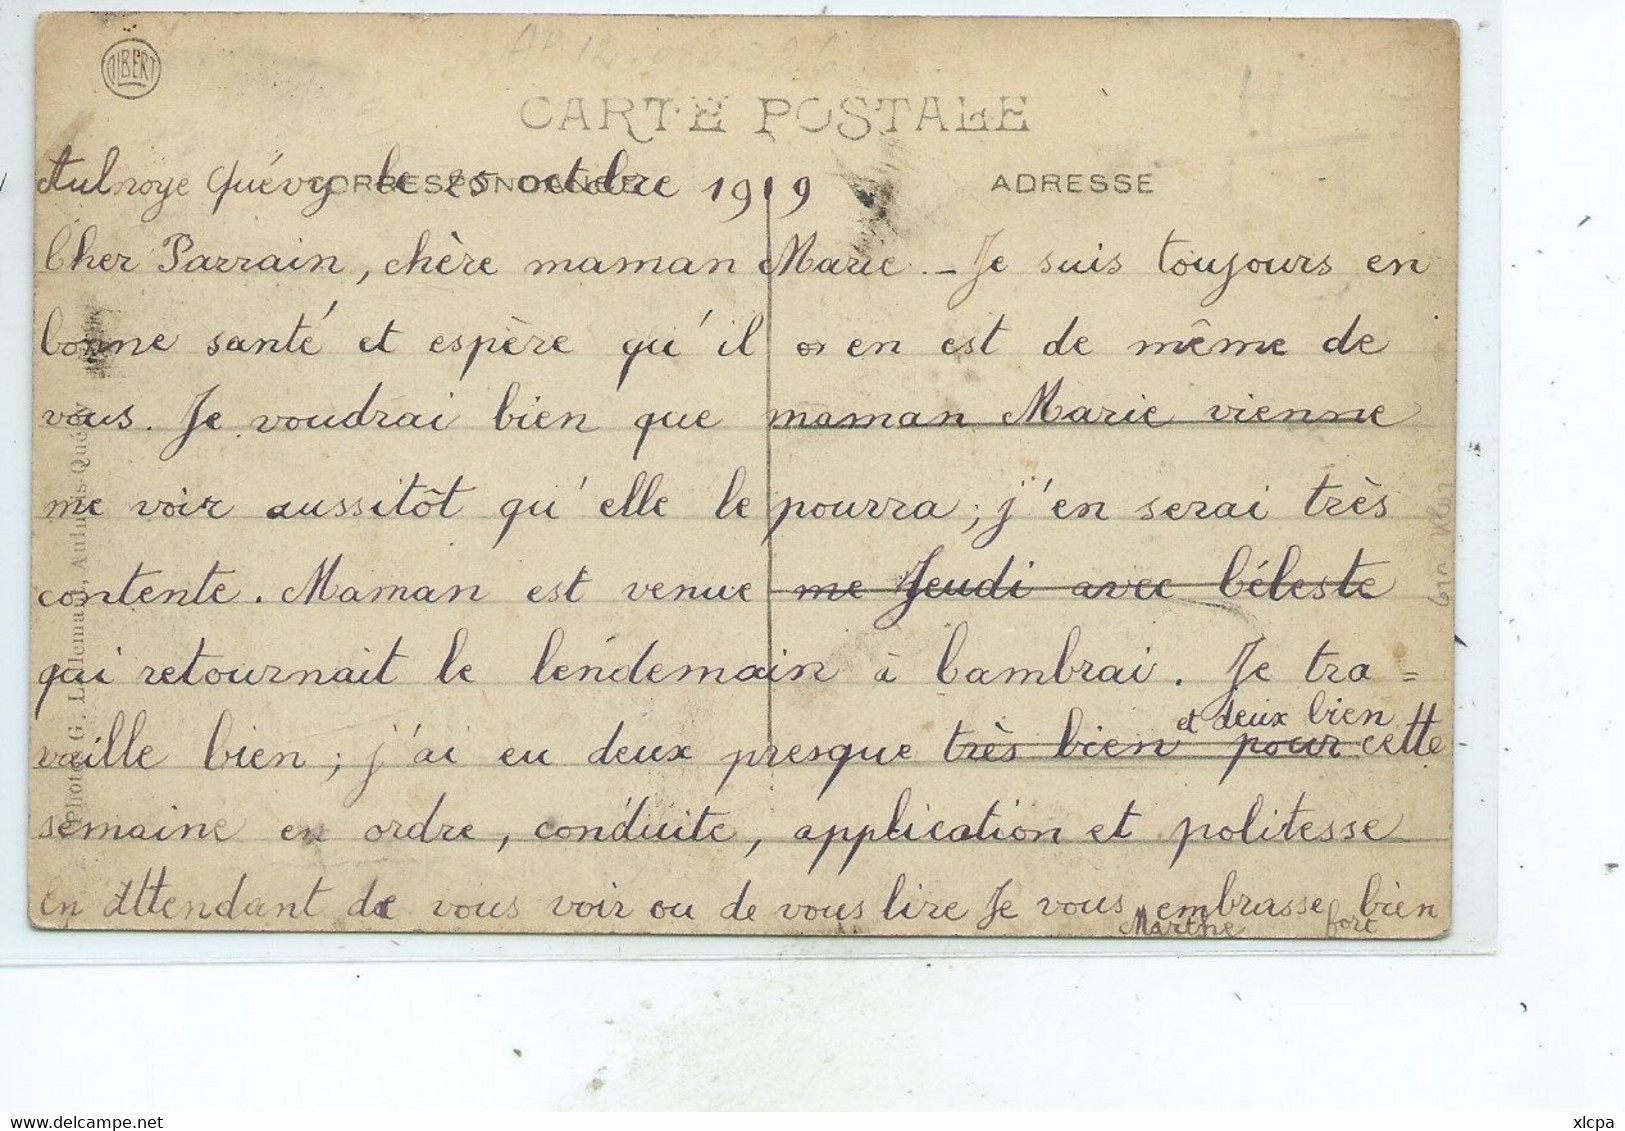 ALBERT
CARTE POSTALE
CORRESPONDANCE
ADRESSE
Aulnoye Quévy le 25 octobre 1919
Cher Parrain, chère maman Marie. – Je suis toujours en
bonne santé et espère qu'il en est de même de
vous. Je voudrai bien que maman Marie vienne
me voir aussitôt qu'elle le pourra ; j'en serai très
contente. Maman est venue me Jeudi avec Céleste
qui retournait le lendemain à Cambrai. Je tra=
vaille bien ; j'ai eu deux presque très bien et deux bien pour cette
semaine en ordre, conduite, application et politesse
En attendant de vous voir ou de vous lire Je vous embrasse bien
fort
Marthe
Photo G. Lallemand, Aulnois-Quévy
delcampe.net
xlcpa